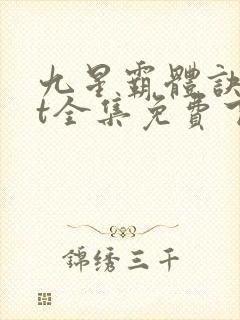 九星霸體訣
t全集免費
錦绣三千